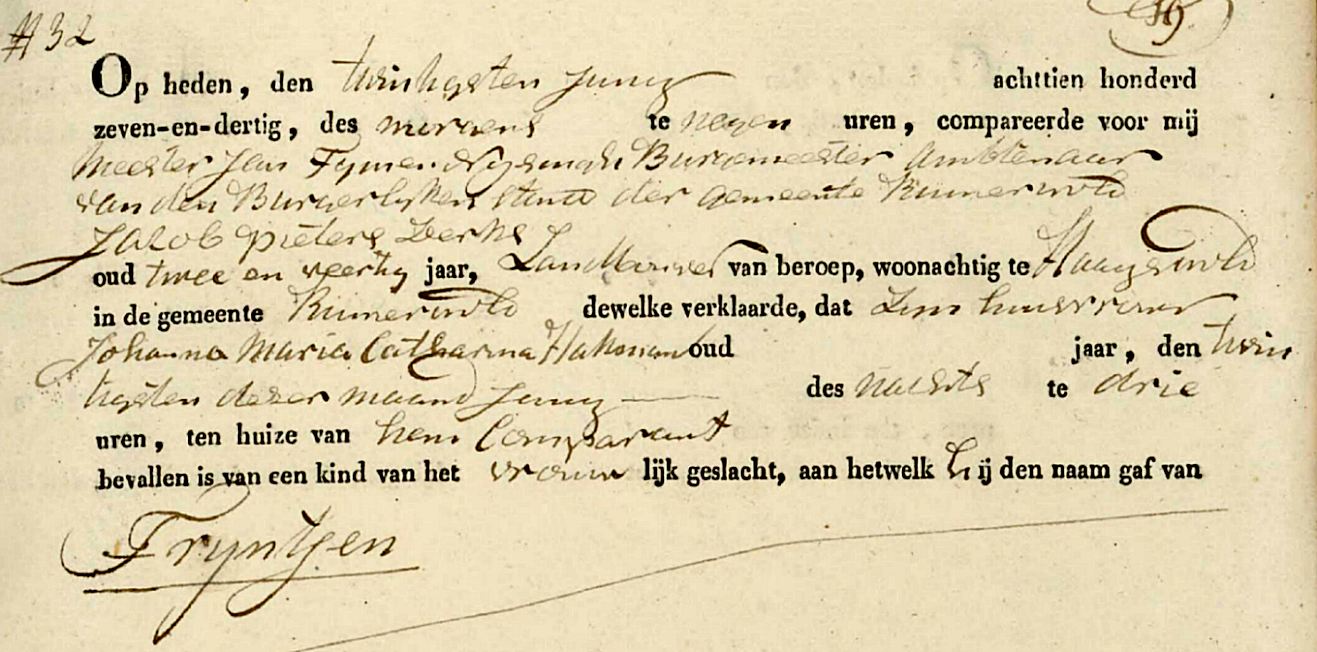 # 32
19
Op heden, den twintigsten Juny achttien honderd
zeven-en-dertig, des morgens te negen uren, compareerde voor mij
Meester Jan Tymen Nysingh Burgemeester Ambtenaar
van den Burgerlyken stand der gemeente Ruinerwold
Jacob Pieters Derks
oud twee en veertig jaar, Landbouwer van beroep, woonachtig te Haagswold
in de gemeente Ruinerwold dewelke verklaarde, dat Zyn huisvrouw
Johanna Maria Catharina oud jaar, den twin
tigsten dezer maand Juny des nachts te drie
uren, ten huize van hem Comparant
bevallen is van een kind van het vrouw lijk geslacht, aan hetwelk hij den naam gaf van
Tryntjen